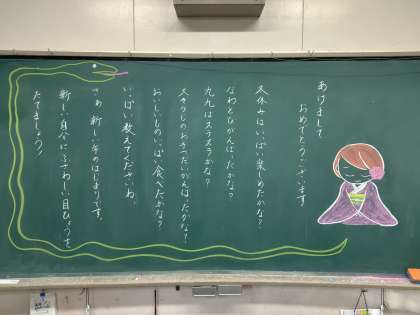 あけまして
おめでとうございます
冬休みはいっぱい楽しめたかな?
なわとびがんばったかな?
九九はスラスラかな?
大そうじのおきつだいがんばったかな?
おいしいものいっぱい食べたかな?
いっぱい教えてくださいね。
さあ 新しい年のはじまりです。
新しい自分にふさわしい目ひょうを
たてましょう♪